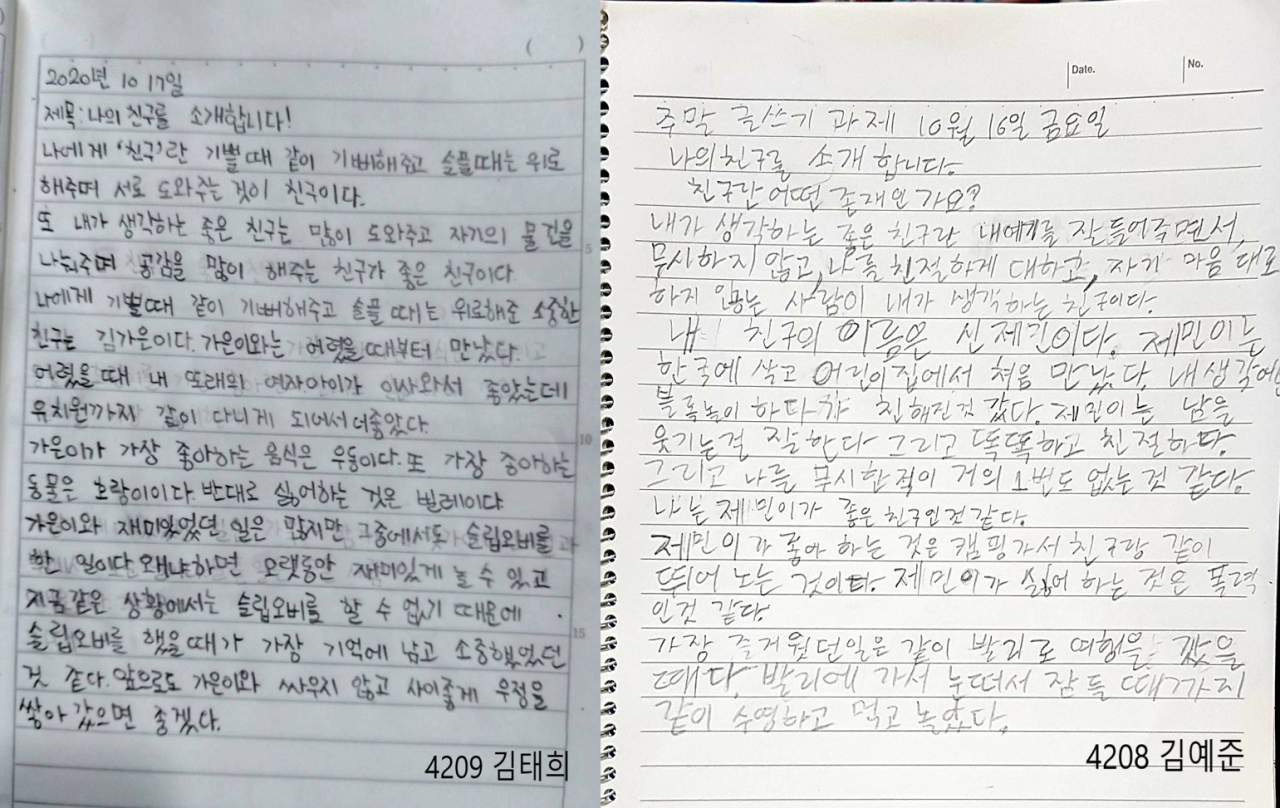 (          )
2020년 10 17일
제목: 나의 친구를 소개합니다!
나에게 '친구'란 기쁠 때 같이 기뻐해주고 슬플때는 위로
해주며 서로 도와주는 것이 친구이다.
또 내가 생각하는 좋은 친구는 많이 도와주고 자기의 물건을
나눠주며 공감을 많이 해주는 친구가 좋은 친구이다.
나에게 기쁠때 같이 기뻐해주고 슬플 때는 위로해준 소중한
친구는 김가은이다. 가은이와는 어렸을때부터 만났다.
어렸을 때 내 또래의 여자아이가 이사와서 좋았는데
유치원까지 같이 다니게 되어서 더좋았다.
가은이가 가장 좋아하는 음식은 우동이다. 또 가장 좋아하는
동물은 호랑이이다. 반대로 싫어하는 것은 벌레이다
가은이와 재미있었던 일은 많지만 그중에서도 슬립오버를
한 일이다. 왜냐하면 오랫동안 재미있게 놀 수 있고
지금같은 상황에서는 슬립오버를 할 수 없기 때문에
슬립오버를 했을때가 가장 기억에 남고 소중했었던
것 같다. 앞으로도 가은이와 싸우지 않고 사이좋게 우정을
쌓아 갔으면 좋겠다.
5
10
15
4209 김태희
Date.
No.
주말 글쓰기 과제 10월 16일 금요일
나의친구를 소개 합니다.
친구란 어떤 존재인 가요?
내가 생각하는 좋은 친구란 내얘기를 잘들어주면서,
무시하지 않고, 나를 친절하게 대하고, 자기 마음 대로
하지 않는 사람이 내가 생각하는 친구이다.
내 친구의 이름은 신제민이다. 제민이는
한국에 살고 어린이집에서 처음 만났다. 내생각에
블록놀이 하다가 친해진것 같다. 제민이는 남을
웃기는걸 잘한다 그리고 똑똑하고 친절하다.
그리고 나를 무시한적이 거의 1번도 없는 것 같다.
나는 제민이가 좋은 친구인것 같다.
제민이가 좋아 하는 것은 캠핑가서 친구랑 같이
뛰어 노는 것이다. 제민이가 싫어 하는 것은 폭력
인것 같다.
가장 즐거웠던일은 같이 발리로 여행을 갔을
때다. 발리에 가서 눈떠서 잠들 때까지
같이 수영하고 먹고 놀았다.
4208 김예준